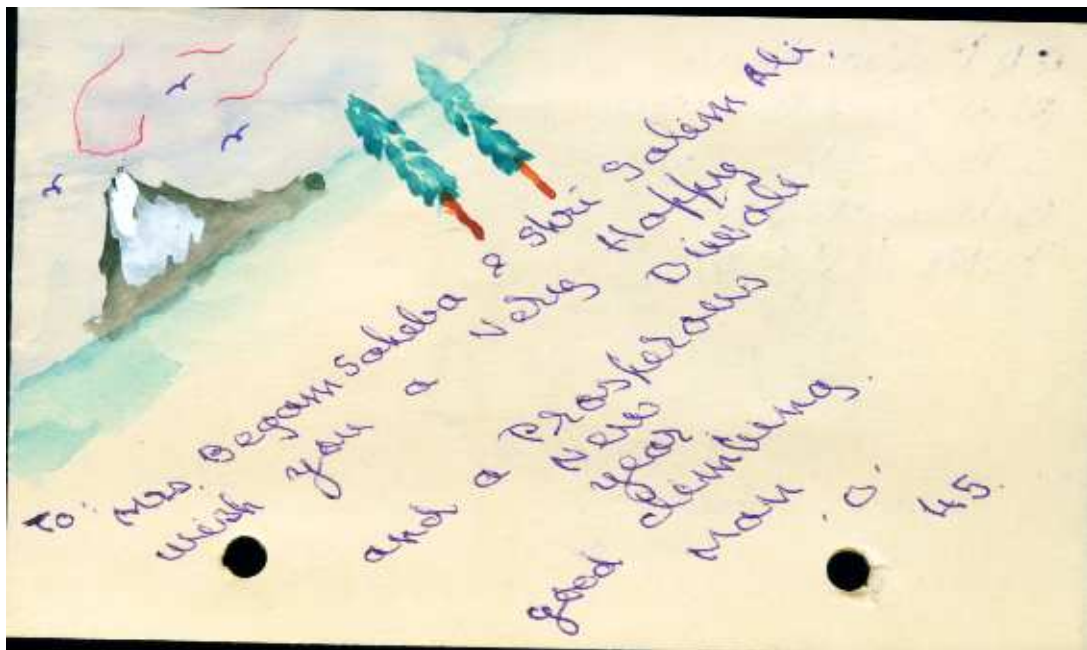 To' Mrs. Begamsaheba & Shri Salim Ali.
wish you a Very Happy
Diwali
and a Prosperous
New
year
good climbing.
Man O' 45